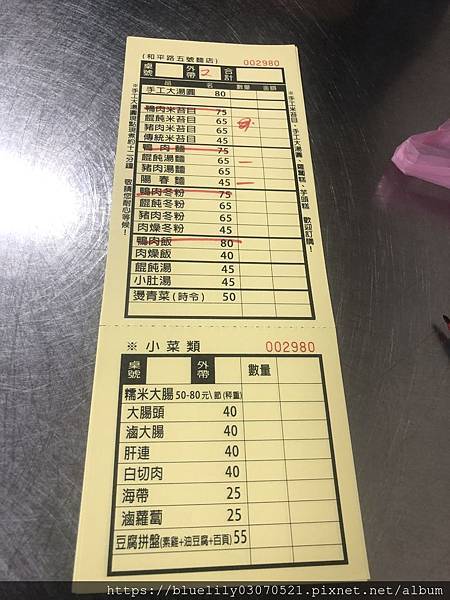 (和平路五號麵店) 002980
桌號 外帶 2 合計
品名 數量 金額
手工大湯圓 80
鴨肉米苔目 75
餛飩米苔目 65
豬肉米苔目 65
傳統米苔目 45
鴨肉麵 75
餛飩湯麵 65 一
豬肉湯麵 65
陽春麵 45 一
鴨肉冬粉 75
餛飩冬粉 65
豬肉冬粉 65
肉燥冬粉 45
鴨肉飯 80
肉燥飯 40
餛飩湯 45
小肚湯 45
燙青菜(時令) 50
※手工大湯圓現點現煮約十二分鐘 敬請您耐心等候！
※手工米苔目、手工大湯圓、蘿蔔糕、芋頭糕 歡迎訂購！
※小菜類 002980
桌號 外帶 數量
糯米大腸 50-80元\節(秤重)
大腸頭 40
滷大腸 40
肝連 40
白切肉 40
海帶 25
滷蘿蔔 25
豆腐拼盤(素雞+油豆腐+百頁) 55
https://bluelily03070521.pixnet.net/album